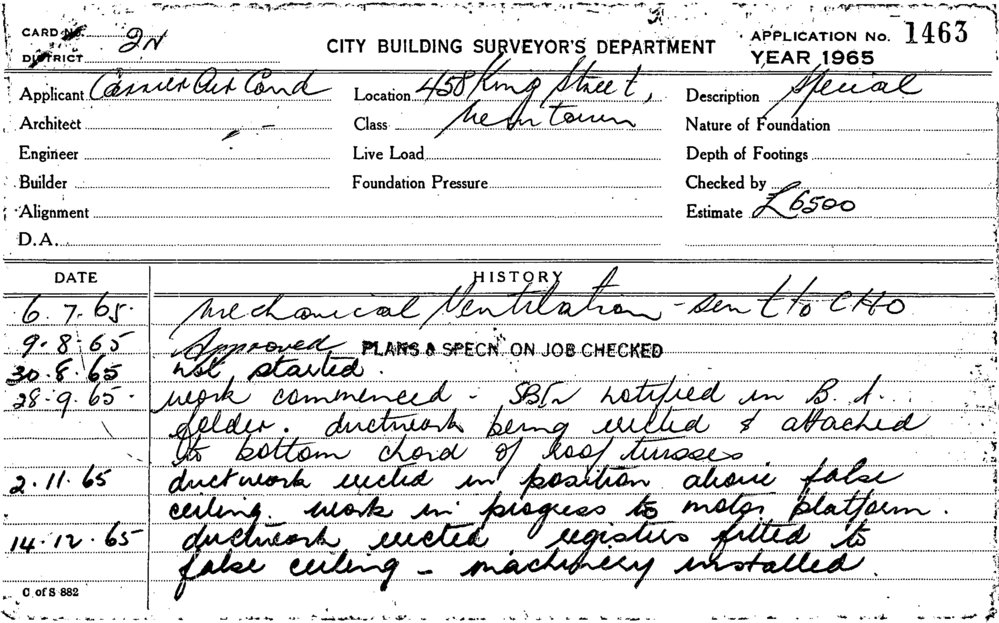 CARD No.
DISTRICT 2N
CITY BUILDING SURVEYOR'S DEPARTMENT
APPLICATION No. 1463
YEAR 1965
Applicant Carrier Air Cond
Location 458 King Street,
Newtown
Description Special
Architect
Class
Nature of Foundation
Engineer
Live Load
Depth of Footings
Builder
Foundation Pressure
Checked by
Alignment
Estimate £6500
D.A.
DATE
HISTORY
6.7.65. Mechanical Ventilation - sent to CHO
9.8.65 Approved PLANS & SPECN. ON JOB CHECKED
30.8.65 not started.
28.9.65. work commenced - notified in B. A.
felder. ductwork being erected & attached
to bottom chord of roof trusses
2.11.65 ductwork erected in position above false
ceiling. work in progress to motor platform.
14.12.65 ductwork erected registers fitted to
false ceiling - machinery installed.
C of S 882